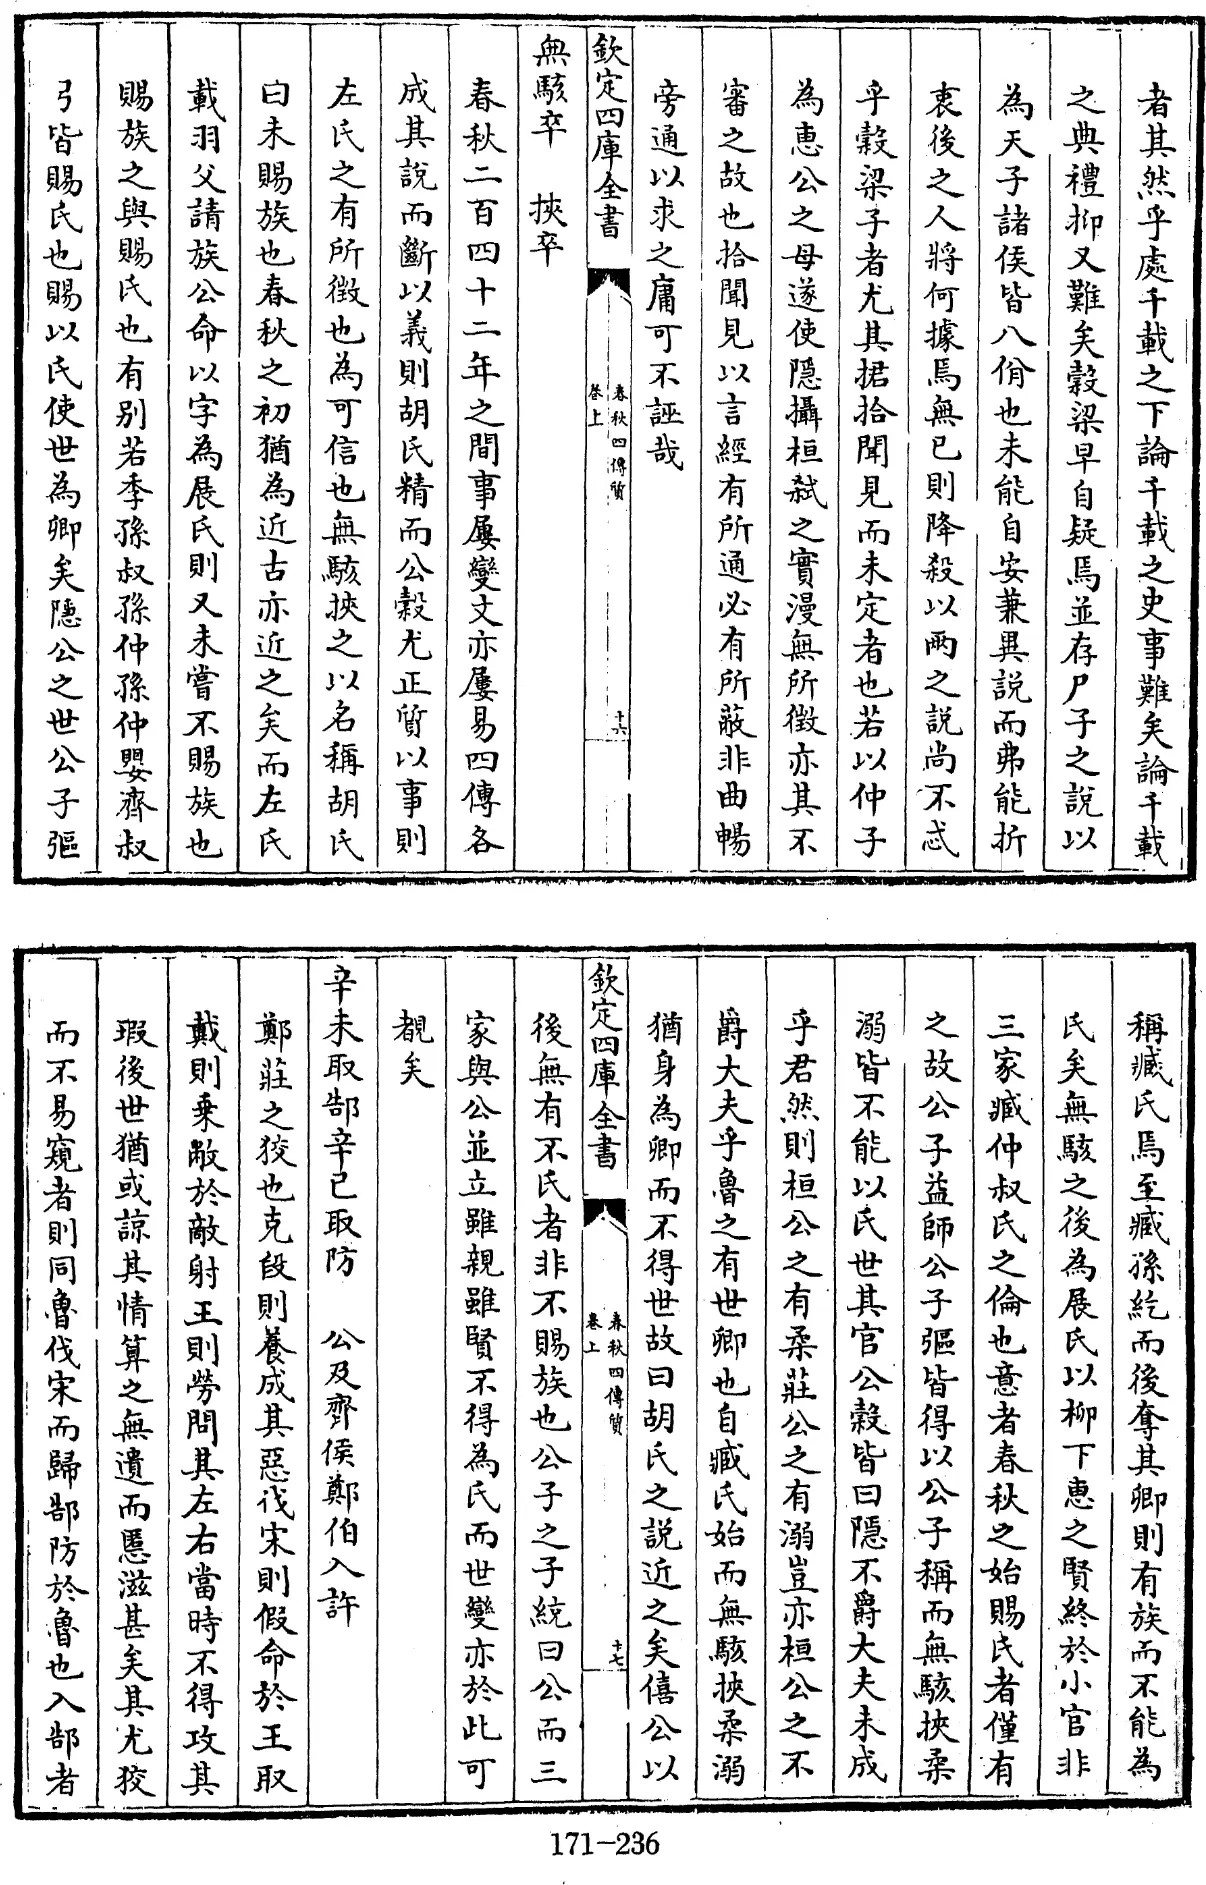 者其然乎處千載之下論千載之史事難矣論千載
之典禮抑又難矣穀梁早自疑焉並存尸子之說以
為天子諸侯皆八佾也未能自安兼異說而弗能折
衷後之人將何據焉無已則降殺以兩之說尚不忒
乎穀梁子者尤其捃拾聞見而未定者也若以仲子
為惠公之母遂使隱攝桓弑之實漫無所徵亦其不
審之故也拾聞見以言經有所通必有所蔽非曲暢
旁通以求之庸可不誣哉
欽定四庫全書
春秋四傳質
卷上
十六
無駭卒 挾卒
春秋二百四十二年之間事屢變文亦屢易四傳各
成其說而斷以義則胡氏精而公穀尤正質以事則
左氏之有所徵也為可信也無駭挾之以名稱胡氏
曰未賜族也春秋之初猶為近古亦近之矣而左氏
載羽父請族公命以字為展氏則又未嘗不賜族也
賜族之與賜氏也有别若季孫叔孫仲孫仲嬰齊叔
弓皆賜氏也賜以氏使世為卿矣隱公之世公子彄
稱臧氏焉至臧孫紇而後奪其卿則有族而不能為
氏矣無駭之後為展氏以柳下惠之賢終於小官非
三家臧仲叔氏之倫也意者春秋之始賜氏者僅有
之故公子益師公子彄皆得以公子稱而無駭挾柔
溺皆不能以氏世其官公穀皆曰隱不爵大夫未成
乎君然則桓公之有柔莊公之有溺豈亦桓公之不
爵大夫乎魯之有世卿也自臧氏始而無駭挾柔溺
猶身為卿而不得世故曰胡氏之説近之矣僖公以
欽定四庫全書
春秋四傳質
卷上
十七
後無有不氏者非不賜族也公子之子統曰公而三
家與公並立雖親雖賢不得為氏而世變亦於此可
覩矣
辛未取郜辛已取防 公及齊侯鄭伯入許
鄭莊之狡也克段則養成其惡伐宋則假命於王取
戴則乘敝於敵射王則勞問其左右當時不得攻其
瑕後世猶或諒其情算之無遺而慝滋甚矣其尤狡
而不易窺者則同魯伐宋而歸郜防於魯也入郜者
171-236